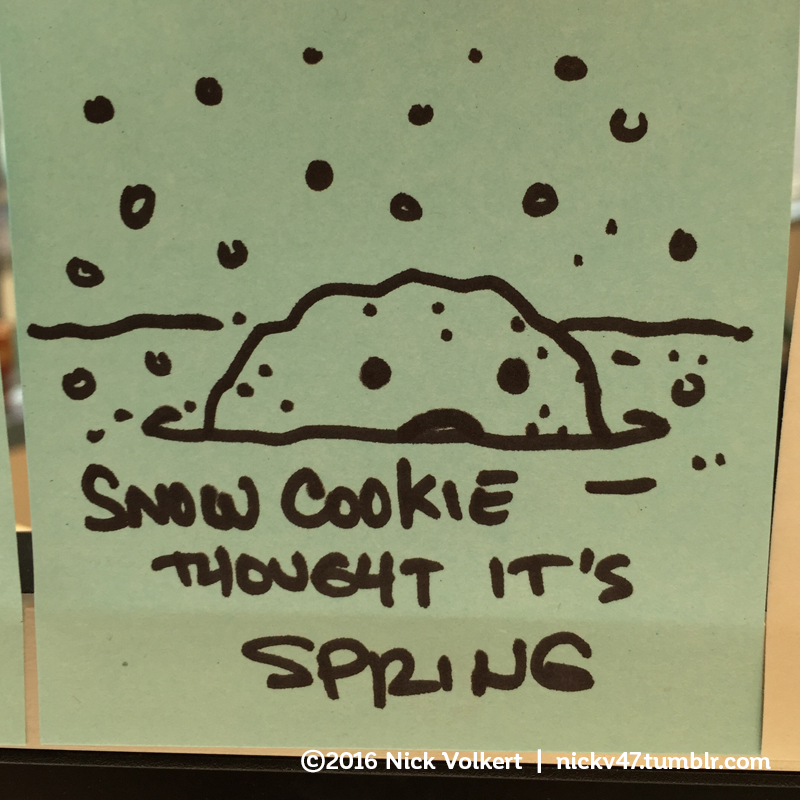 SNOW COOKIE
THOUGHT IT'S
SPRING
©2016 Nick Volkert | nickv47.tumblr.com